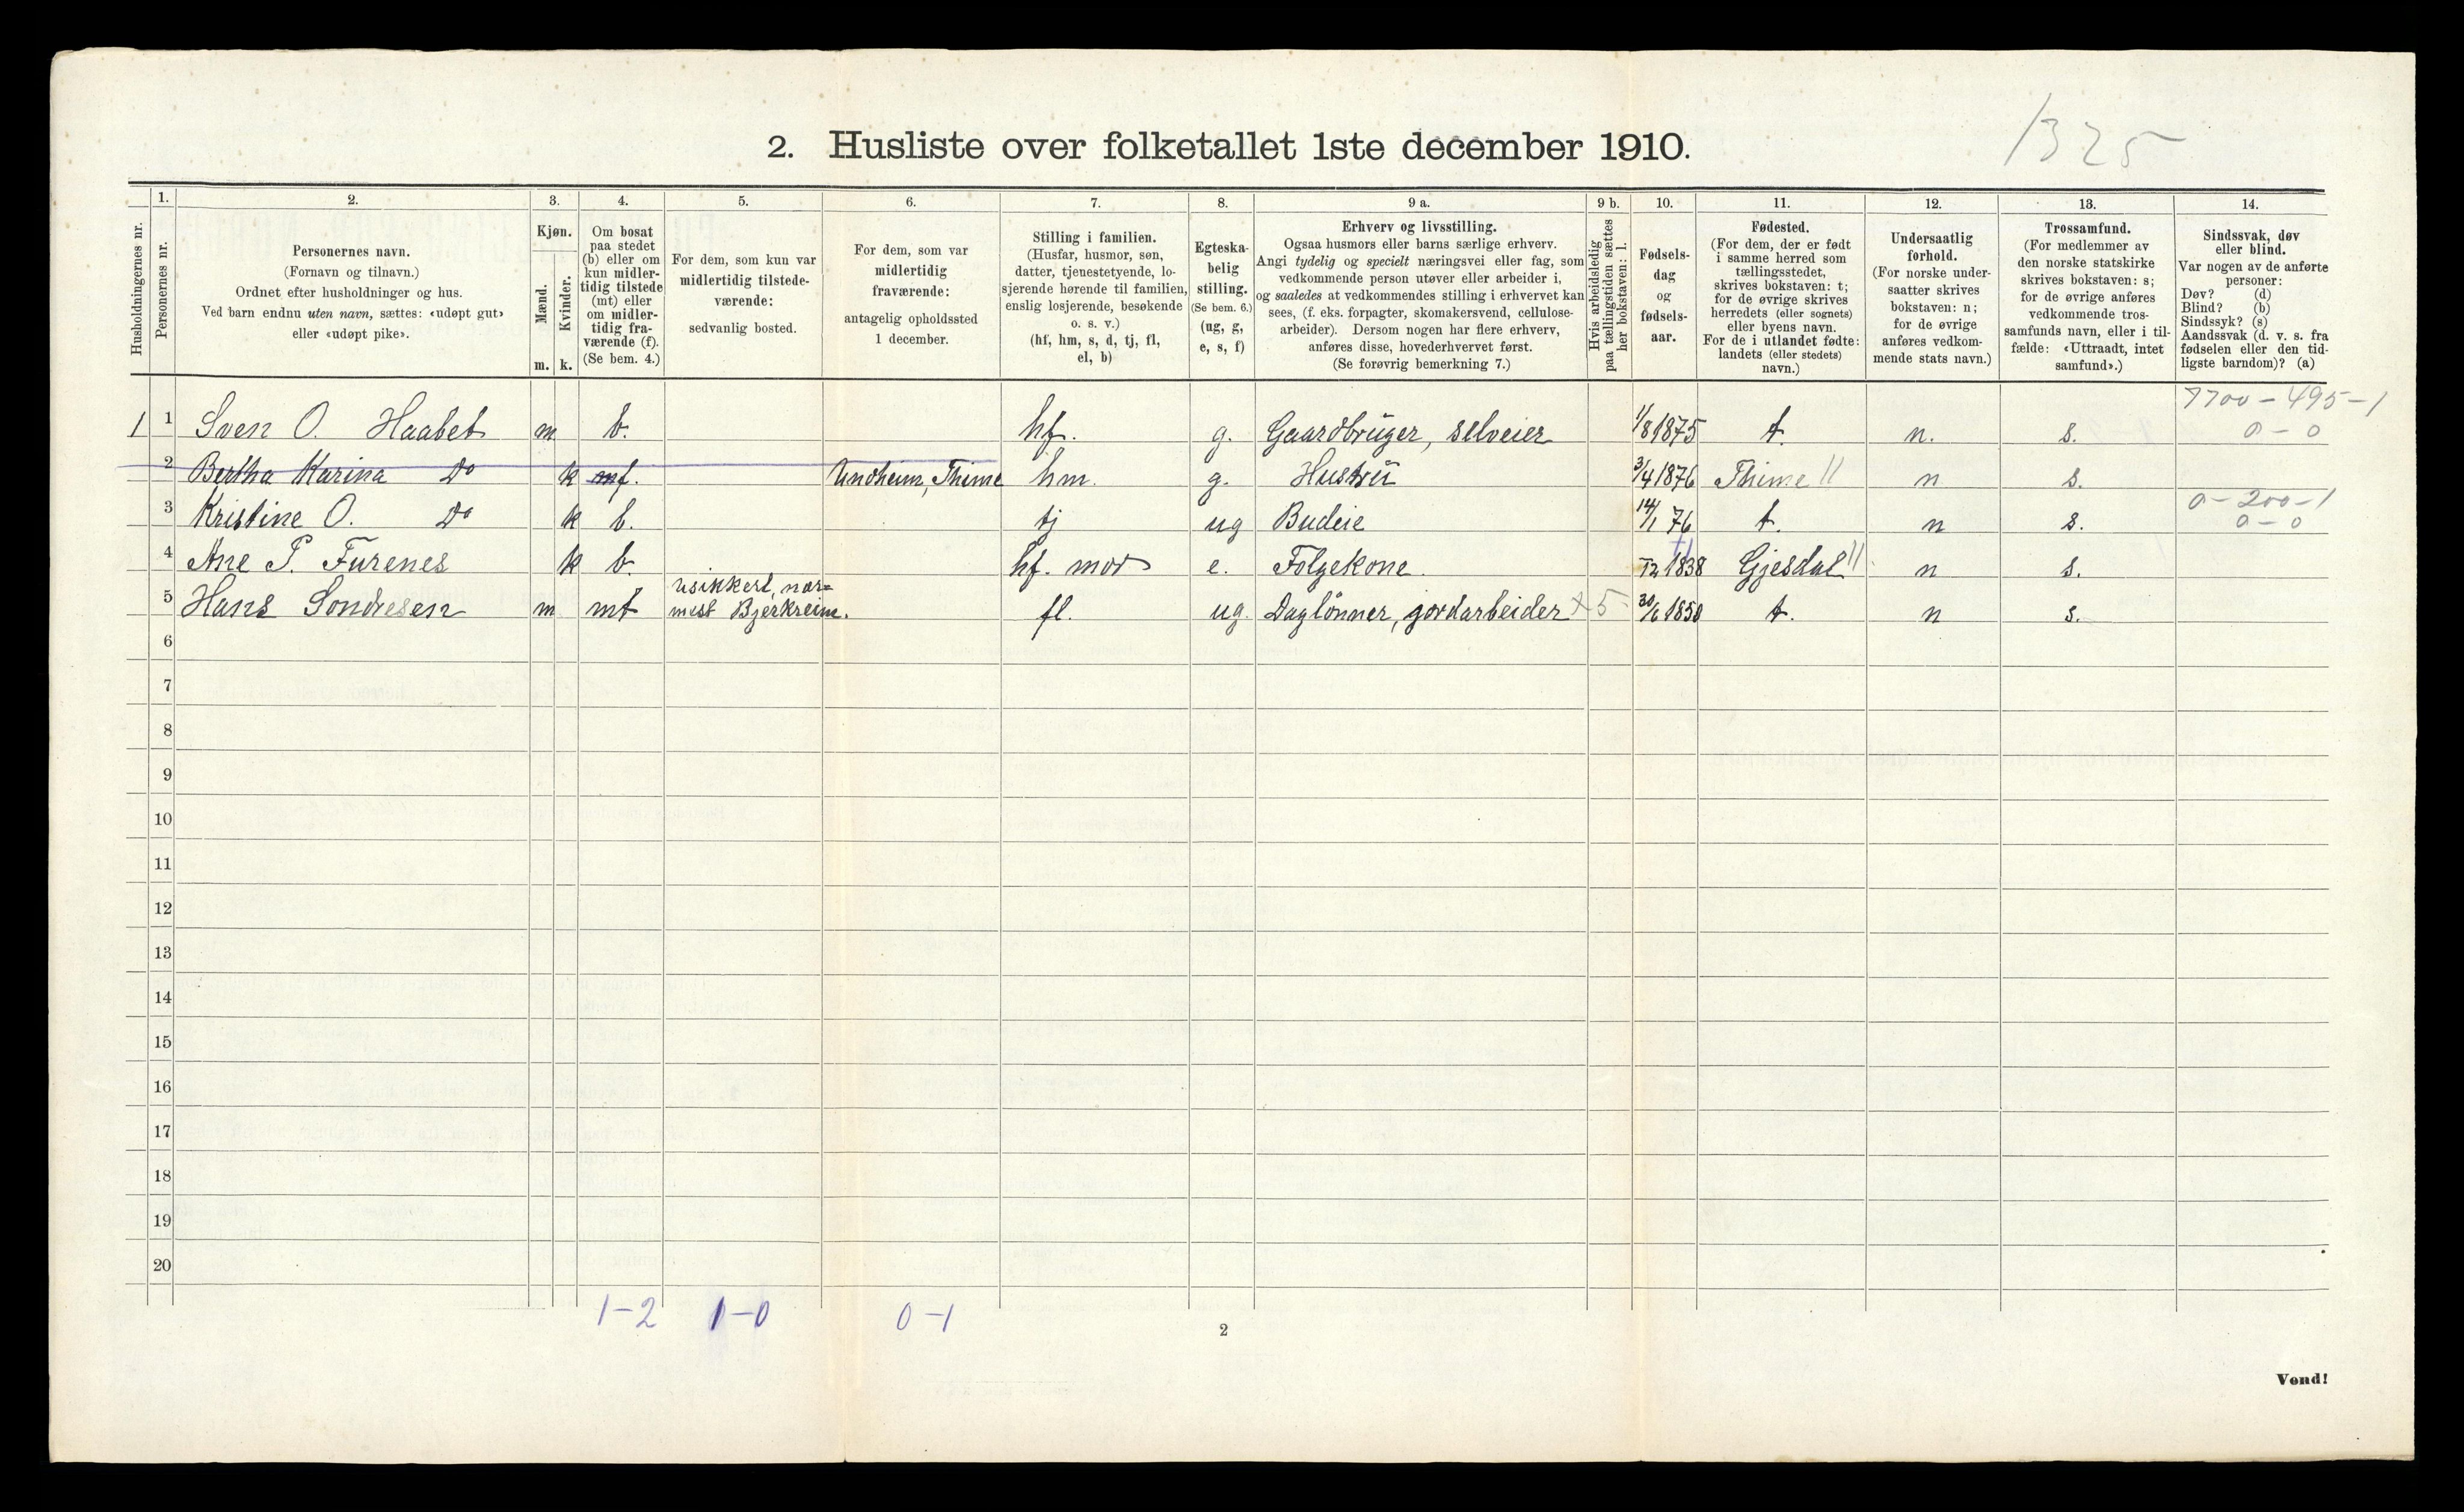 1325
2. Husliste over folketallet 1ste december 1910.
Husholdningernes nr.
1.
Personernes nr.
2.
Personernes navn.
(Fornavn og tilnavn.)
Ordnet efter husholdninger og hus.
Ved barn endnu uten navn, sættes: «udøpt gut»
eller «udøpt pike».
3.
Kjøn.
Mænd.
Kvinder.
m. k.
4.
Om bosat
paa stedet
(b) eller om
kun midler-
tidig tilstede
(mt) eller
om midler-
tidig fra-
værende (f).
(Se bem. 4.)
5.
For dem, som kun var
midlertidig tilstede-
værende:
sedvanlig bosted.
6.
For dem, som var
midlertidig
fraværende:
antagelig opholdssted
1 december.
7.
Stilling i familien.
(Husfar, husmor, søn,
datter, tjenestetyende, lo-
sjerende hørende til familien,
enslig losjerende, besøkende
o. s. v.)
(hf, hm, s, d, tj, fl,
el, b)
8.
Egteska-
belig
stilling.
(Se bem. 6.)
(ug, g,
e, s, f)
9 a.
Erhverv og livsstilling.
Ogsaa husmors eller barns særlige erhverv.
Angi tydelig og specielt næringsvei eller fag, som
vedkommende person utøver eller arbeider i,
og saaledes at vedkommendes stilling i erhvervet kan
sees, (f. eks. forpagter, skomakersvend, cellulose-
arbeider). Dersom nogen har flere erhverv,
anføres disse, hovederhvervet først.
(Se forøvrig bemerkning 7.)
9 b.
Hvis arbeidsledig
paa tællingstiden sættes
her bokstaven: l.
10.
Fødsels-
dag
og
fødsels-
aar.
11.
Fødested.
(For dem, der er født
i samme herred som
tællingsstedet,
skrives bokstaven: t;
for de øvrige skrives
herredets (eller sognets)
eller byens navn.
For de i utlandet fødte:
landets (eller stedets)
navn.)
12.
Undersaatlig
forhold.
(For norske under-
saatter skrives
bokstaven: n;
for de øvrige
anføres vedkom-
mende stats navn.)
13.
Trossamfund.
(For medlemmer av
den norske statskirke
skrives bokstaven: s;
for de øvrige anføres
vedkommende tros-
samfunds navn, eller i til-
fælde: «Uttraadt, intet
samfund».)
14.
Sindssvak, døv
eller blind.
Var nogen av de anførte
personer:
Døv? (d)
Blind? (b)
Sindssyk? (s)
Aandssvak (d. v. s. fra
fødselen eller den tid-
ligste barndom)? (a)
7700 - 495 - 1
1 1 Sven O. Haabet m b. hf. g. Gaardbruger, selveier 1/8 1875 t. n. s. 0 - 0
2 Bertha Karina Do k mf. Undheim, Thime hm. g. Hustru 3/4 1876 Thime n s.
0 - 200 - 1
3 Kristine O. Do k b. tj ug Budeie 14/1 76 t. n s. 0 - 0
4 Ane P. Furenes k b. hf. mor e. Følgekone. 1838 Gjesdal n s.
usikkert, nær=
5 Hans Sondresen m mt mest Bjerkreim. fl. ug. Daglönner, jordarbeider + 5 30/6 1850 t. n s.
6
7
8
9
10
11
12
13
14
15
16
17
18
19
20
1-2 1-0 0-1
2
Vend!